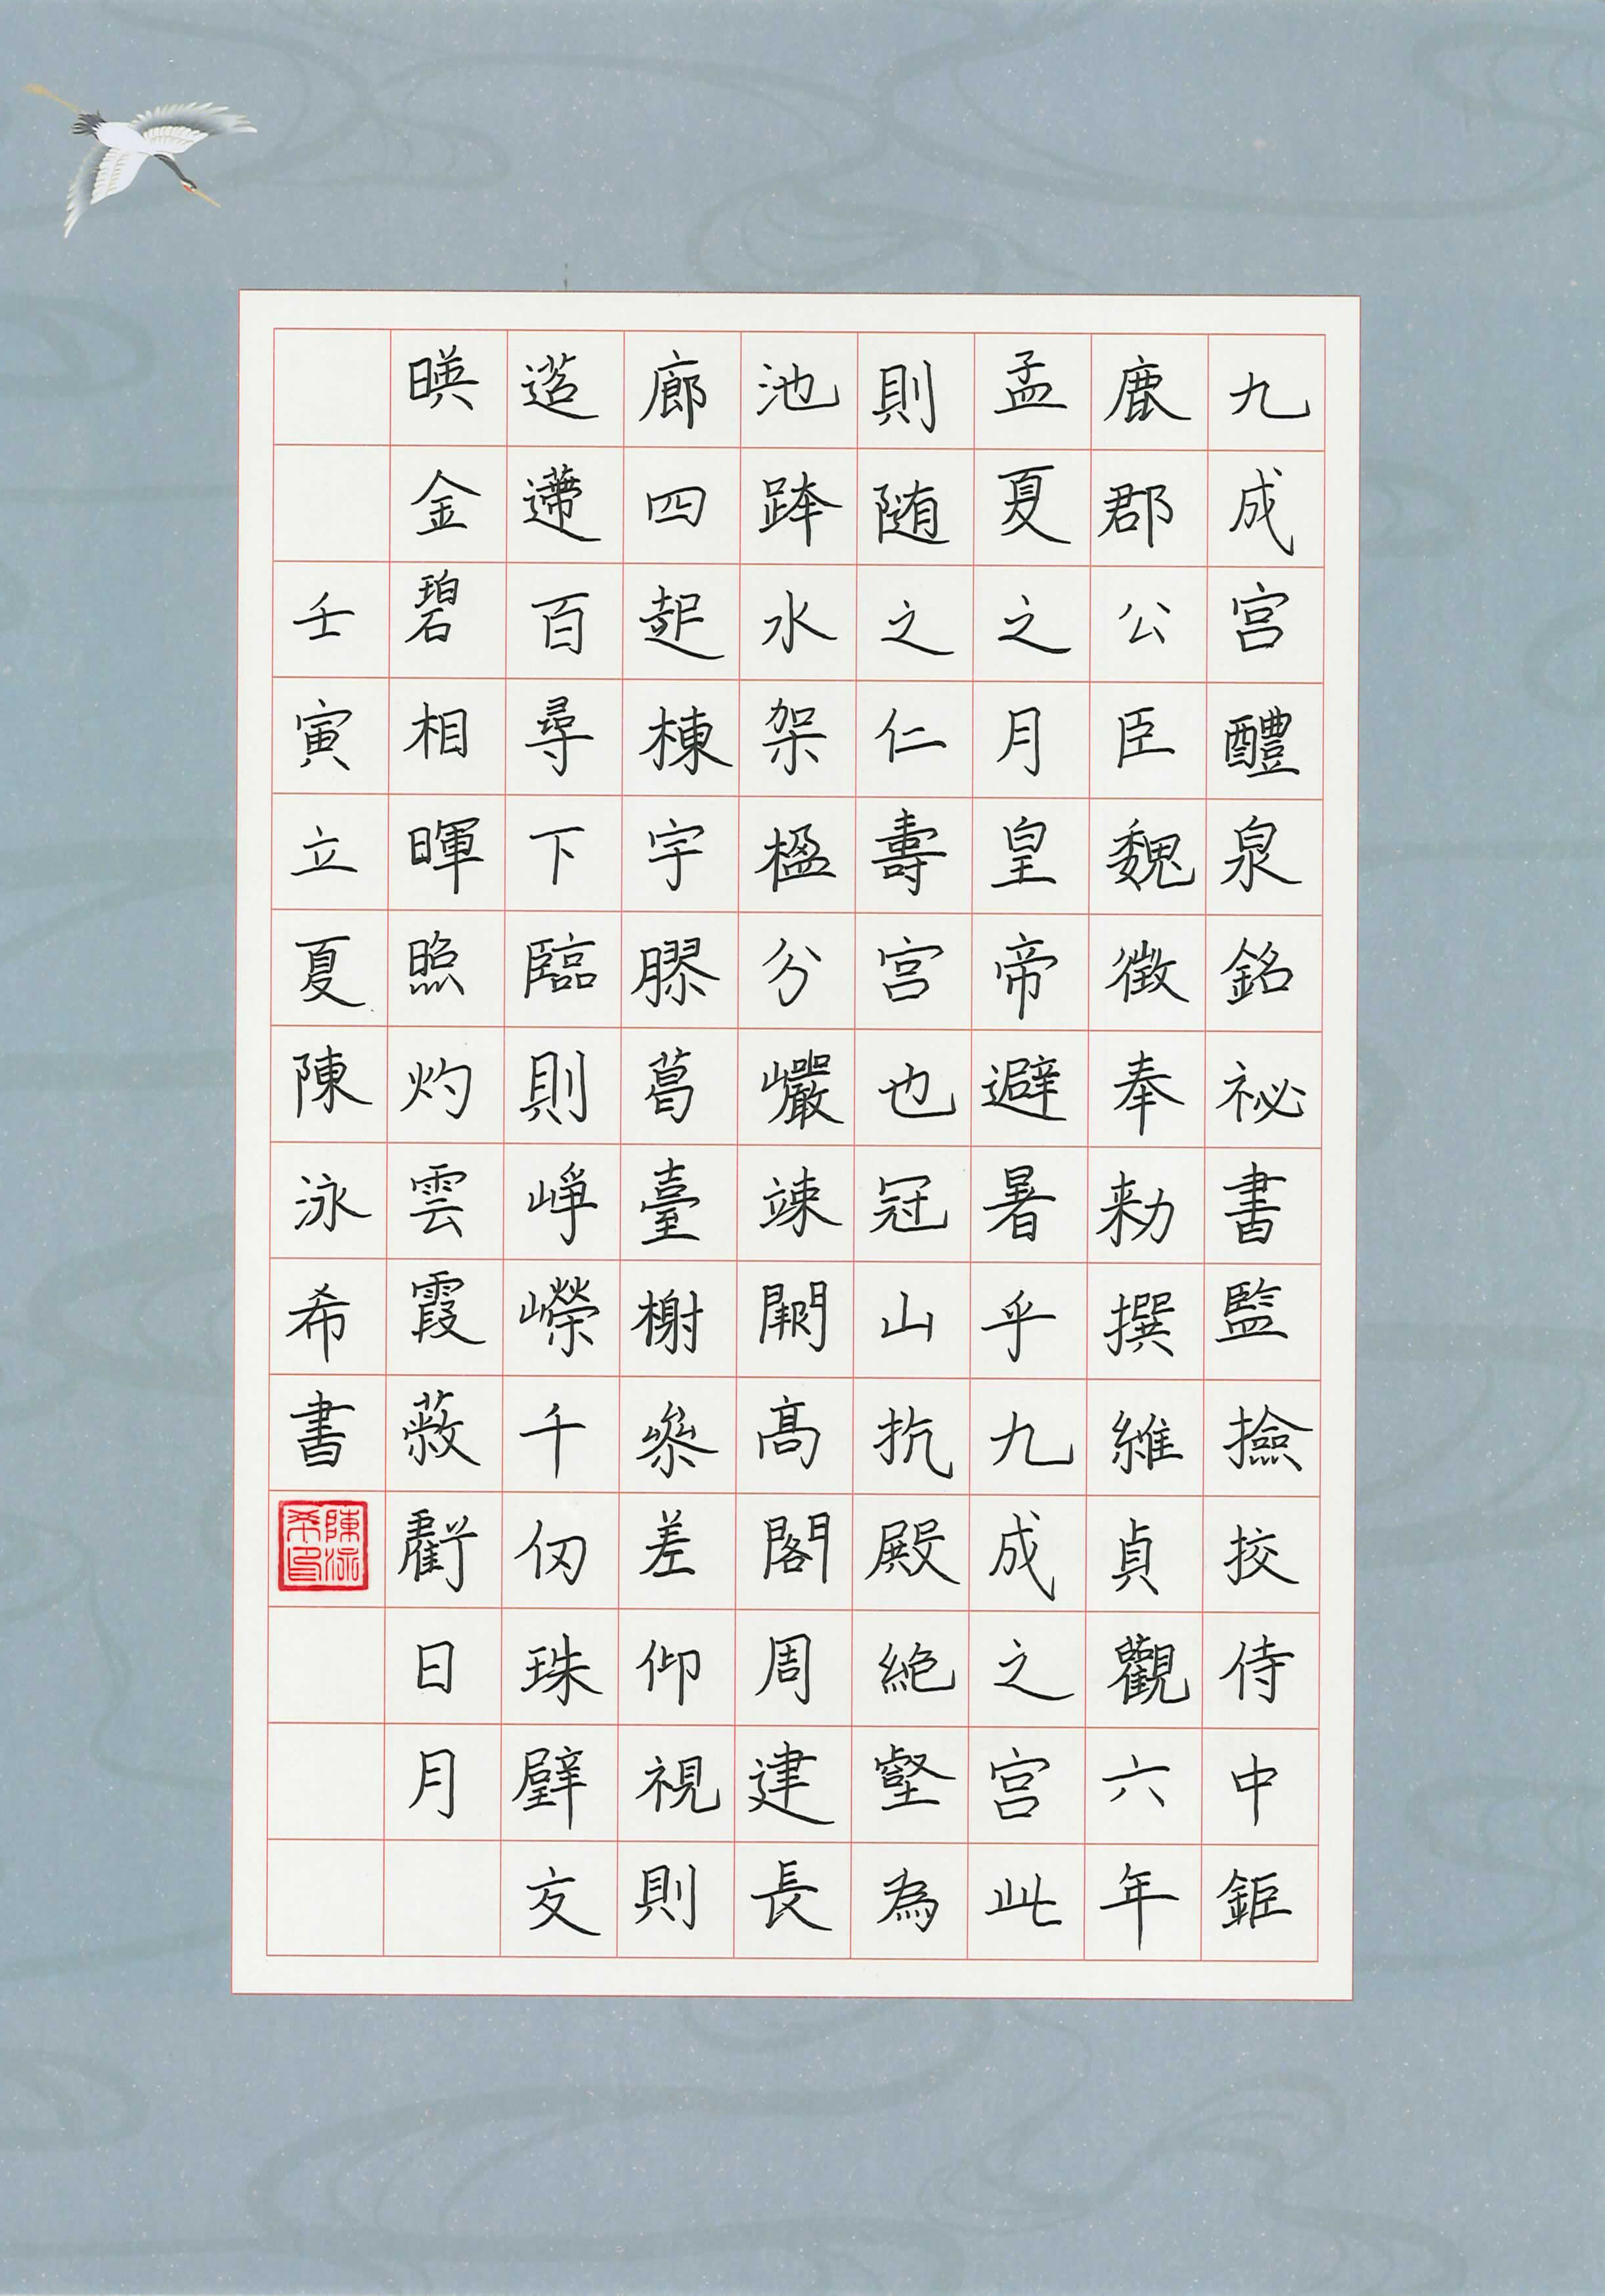 九成宫醴泉銘祕書監撿挍侍中鉅
鹿郡公臣魏徵奉勑撰維貞觀六年
孟夏之月皇帝避暑乎九成之宫此
則随之仁壽宫也冠山抗殿絶壑為
池跨水架楹分巖竦闕髙閣周建長
廊四起棟宇膠葛臺榭叅差仰視則
迢遰百尋下臨則崢嶸千仞珠璧交
暎金碧相暉照灼雲霞蔽虧日月
壬寅立夏陳泳希書
陳泳希印